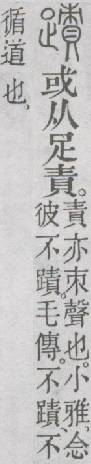 蹟 或从足責。責亦朿聲也。小雅、念
彼不蹟。毛傳。不蹟、不
循道也、